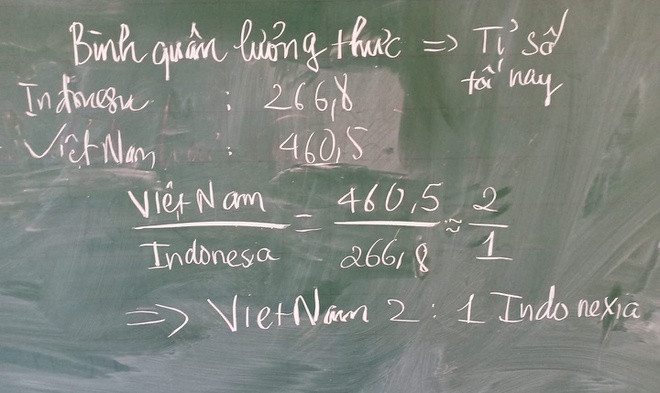 Bình quân lương thực => Tỉ số
tối nay
Indonesia : 266,8
Việt Nam : 460,5
Việt Nam = 460,5 ≈ 2
Indonesa 266,8 1
=> Việt Nam 2 : 1 Indonexia